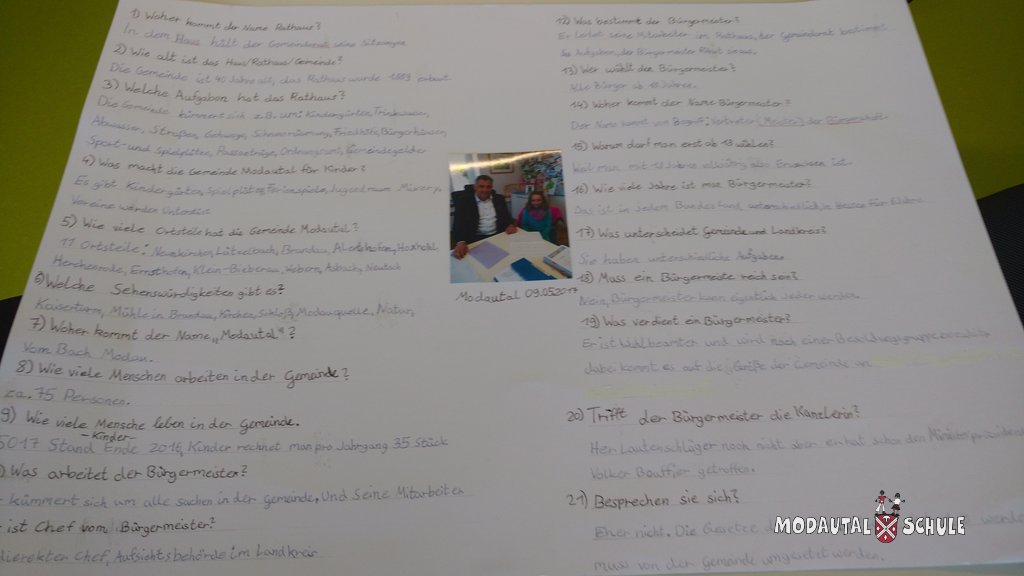 1) Woher kommt der Name Rathaus?
In dem Haus hält der Gemeinderat seine Sitzungen
2) Wie alt ist das Haus/Rathaus/Gemeinde?
Die Gemeinde ist 40 Jahre alt, das Rathaus wurde 1889 erbaut.
3) Welche Aufgaben hat das Rathaus?
Die Gemeinde kümmert sich z.B. um: Kindergärten, Trinkwasser,
Abwasser, Straßen, Gehwege, Schneeräumung, Friedhöfe, Bürgerhäuser,
Sport- und Spielplätze, Passanträge, Ordnungsamt, Gemeindegelder
4) Was macht die Gemeinde Modautal für Kinder?
Es gibt Kindergärten, Spielplätze, Ferienspiele, Jugendraum
Vereine werden
5) Wie viele Ortsteile hat die Gemeinde Modautal?
11 Ortsteile: Neunkirchen, Lützelbach, Brandau, Hoxhohl,
Herchenrode, Ernsthofen, Klein-Bieberau, Webern, Asbach, Neutsch
6) Welche Sehenswürdigkeiten gibt es?
Kaiserturm, Mühle in Brandau, Kirchen, Schloß, Modauquelle, Natur,
7) Woher kommt der Name „Modautal"?
Vom Bach Modau.
8) Wie viele Menschen arbeiten in der Gemeinde?
za. 75 Personen.
9) Wie viele Mensche leben in der Gemeinde.
-Kinder-
5017 Stand Ende 2016, Kinder rechnet man pro Jahrgang 35 Stück
) Was arbeitet der Bürgermeister?
kümmert sich um alle sachen in der gemeinde, Und Seine Mitarbeiter
ist Chef vom Bürgermeister?
direkten Chef, Aufsichtsbehörde im Landkreis
Modautal 09.05.2017
12) Was bestimmt der Bürgermeister?
Er leitet seine Mitarbeiter im Rathaus, der Gemeindrat bestimmt
die Aufgaben, der Bürgermeister führt sie aus.
13) Wer wählt den Bürgermeister?
Alle Bürger ab 18 Jahre.
14) Woher kommt der Name Bürgermeister?
Der Name kommt vom Begriff: Vertreter (Meister) der Bürgerschaft.
15) Warum darf man erst ab 18 wielen?
Weil man mit 18 Jahre volljärig also Erwachsen ist.
16) Wie viele Jahre ist man Bürgermeister?
Das ist in jedem Bundesland unterschiedlich, in Hessen für 6 Jahre.
17) Was unterscheidet Gemeinde und Landkreis?
Sie haben unterschiedliche Aufgaben.
18) Muss ein Bürgermeiste reich sein?
Nein, Bürgermeister kann eigentlich Jeder werden.
19) Was verdient ein Bürgermeister?
Er ist Wahlbeamter und wird nach einer Besoldungsgruppe bezahlt
dabei kommt es auf die Größe der Gemeinde an
20) Trifft der Bürgermeister die Kanzlerin?
Herr Lautenschläger noch nicht aber er hat schon den Ministerpräsidenten
Volker Bouffier getroffen.
21) Besprechen sie sich?
Eher nicht. Die Gesetze
muss von der Gemeinde umgesetzt werden.
MODAUTAL SCHULE